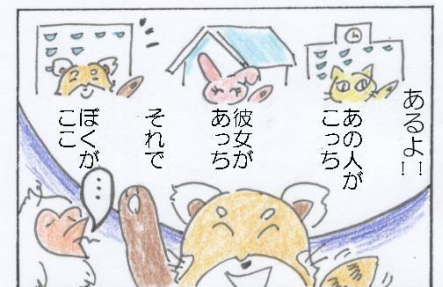 あるよ!!
あの人が
こっち
彼女が
あっち
それで
ぼくが
ここ
…